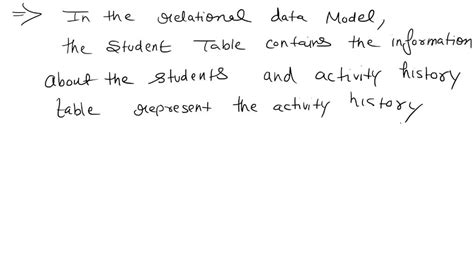 ⇒ In the relational data Model,
the Student Table contains the information
about the students and activity history
table represent the activity history